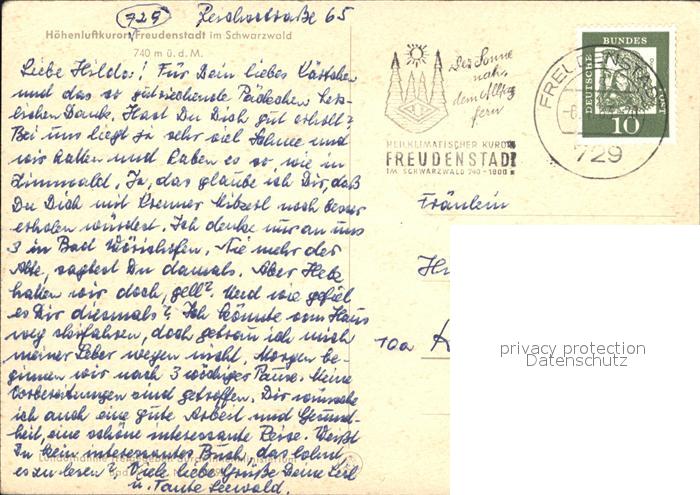 729 Reichsstraße 65
Höhenluftkurort Freudenstadt im Schwarzwald
740 m ü. d. M.
Liebe Hilde! Für Dein liebes Kärtchen
und das so gutriechende Päckchen herz-
lichen Dank. Hast Du Dich gut erholt?
Bei uns liegt ja sehr viel Schnee und
wir hatten und haben es so wie in
Zinnwald. Ja, das glaube ich Dir, daß
Du Dich mit Mitzerl noch besser
erholen würdest. Ich denke nur an uns
3 in Bad Wörishofen. Nie mehr der
Alte, sagtest Du damals. Aber Hetz
hatten wir doch, gell? Und wie gefiel
es Dir diesmals? Ich könnte vom Haus
weg skifahren, doch getrau ich mich
meiner Leber wegen nicht. Morgen be-
ginnen wir nach 3 wöchiger Pause. Meine
Vorbereitungen sind getroffen. Dir wünsche
ich auch eine gute Arbeit und Gesund-
heit, eine schöne interessante Reise. Weißt
Du kein interessantes Buch, das lohnt,
es zu lesen? Viele liebe Grüße Deine
u. Tante Leewald.
Der Sonne
nah,
dem Alltag
fern
HEILKLIMATISCHER KURORT
FREUDENSTADT
IM SCHWARZWALD 740 - 1000 m
FREUDENSTADT
729
DEUTSCHE BUNDESPOST
10
Fräulein
10a
privacy protection
Datenschutz